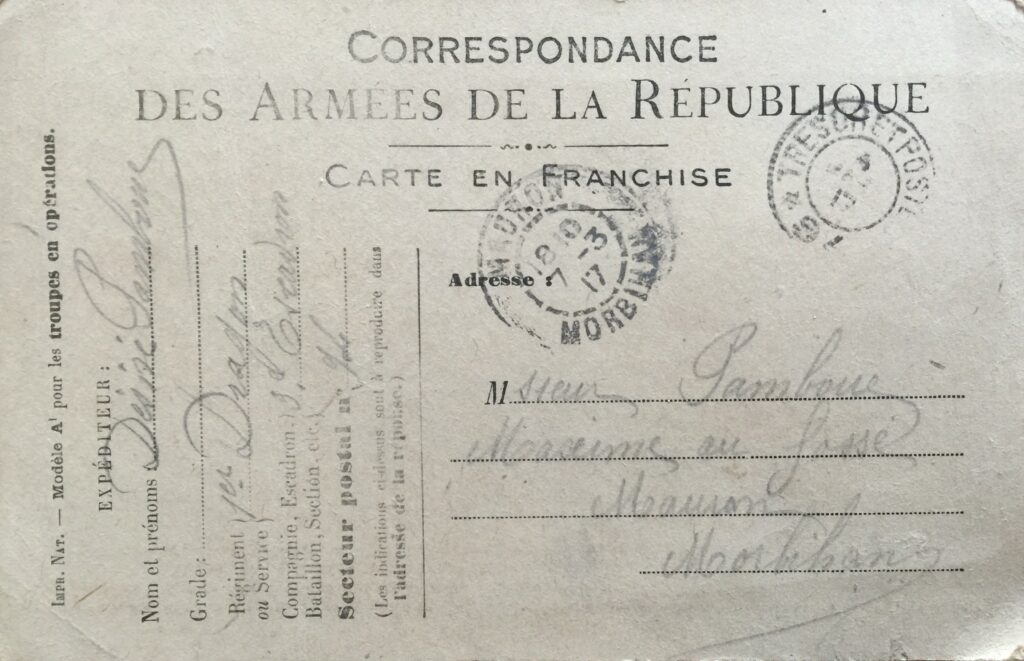 CORRESPONDANCE
DES ARMÉES DE LA RÉPUBLIQUE
CARTE EN FRANCHISE
TRESOR ET POSTES
MAURON
18 10
7 -3
17
MORBIHAN
Adresse :
Msieur Pamboue
Maxime au fossé
Mauron
Morbihan
IMPR. NAT. — Modèle A1 pour les troupes en opérations.
EXPÉDITEUR :
Nom et prénoms : Désiré Pamboue
Grade :
Régiment 1er Dragon
ou Service)
Compagnie, Escadron,
Bataillon, Section, etc.
Secteur postal n°
(Les indications ci-dessus sont à reproduire dans
l'adresse de la réponse.)